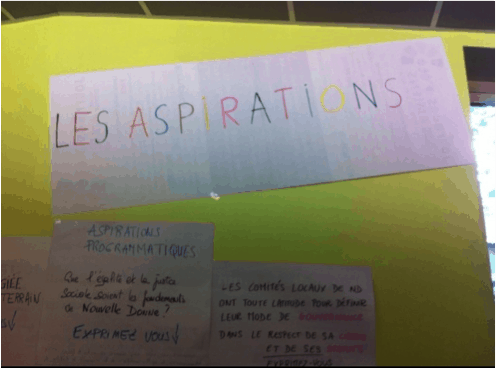 LES ASPIRATIONS
ASPIRATIONS
PROGRAMMATIQUES
Que l'égalité et la justice
sociale soient les fondements
de Nouvelle Donne ?
EXPRIMEZ VOUS
TERRAIN
LES COMITÉS LOCAUX DE ND
ONT TOUTE LATITUDE POUR DÉFINIR
LEUR MODE DE GOUVERNANCE
DANS LE RESPECT DE SA CHARTE
ET DE SES